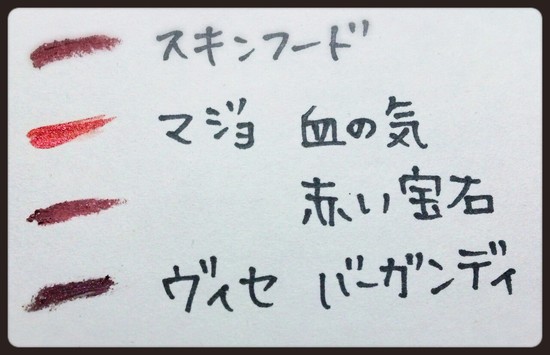 スキンフード
マジョ 血の気
赤い宝石
ヴィセ バーガンディ